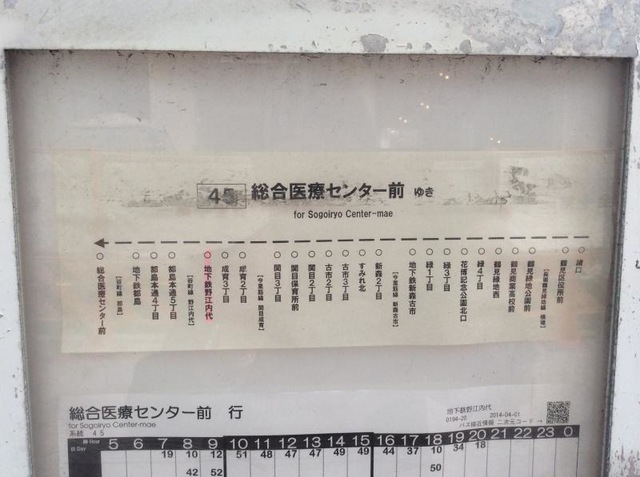 45 総合医療センター前 ゆき
for Sogoiryo Center-mae
総合医療センター前
地下鉄都島
[谷町線 都島]
都島本通4丁目
都島本通5丁目
[谷町線 野江内代]
地下鉄野江内代
成育3丁目
成育2丁目
[今里筋線 関目成育]
関目3丁目
関目保育所前
関目2丁目
古市2丁目
古市3丁目
すみれ北
新森2丁目
[今里筋線 新森古市]
地下鉄新森古市
緑1丁目
緑3丁目
花博記念公園北口
緑4丁目
鶴見緑地西
鶴見商業高校前
鶴見緑地公園前
[長堀鶴見緑地線 横堤]
鶴見区役所前
諸口
総合医療センター前 行
for Sogoiryo Center-mae
系統 45
地下鉄野江内代
0194-20 2014-04-01
バス接近情報 二次元コード→
時 Hour 5 6 7 8 9 10 11 12 13 14 15 16 17 18 19 20 21 22 23 0
日 Day 19 10 12 51 48 47 49 47 49 44 37 10 34 18
42 52 50